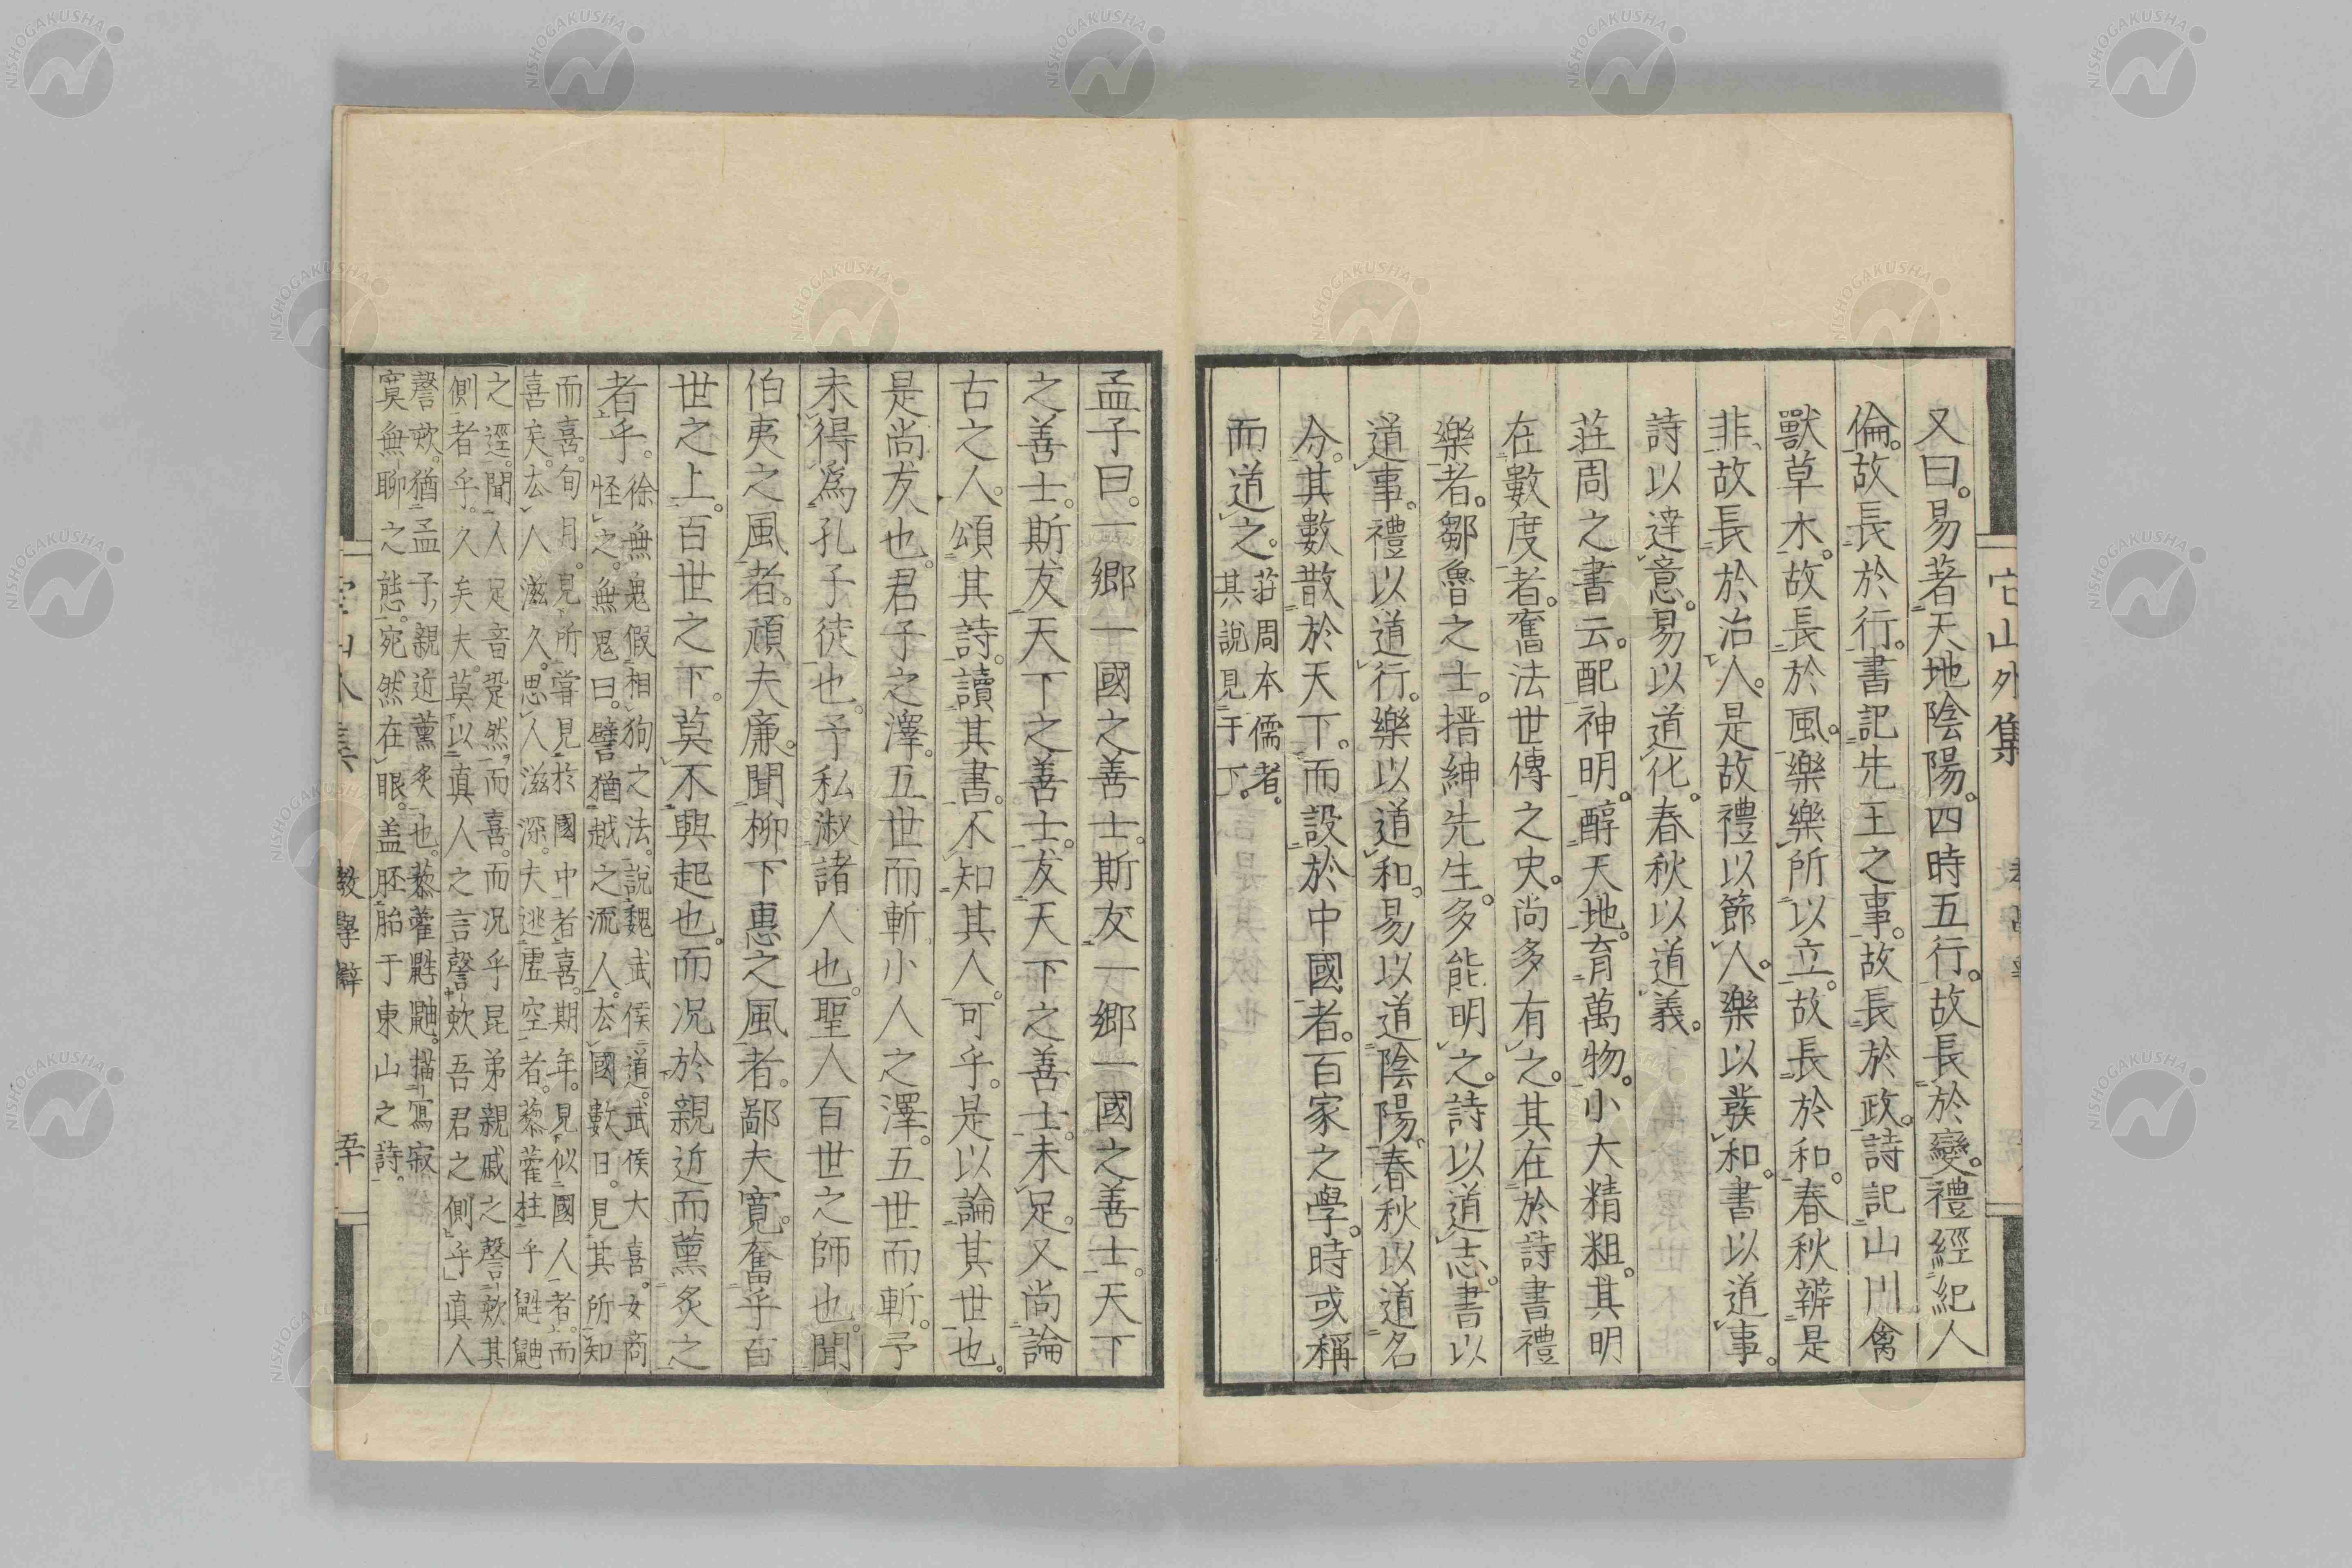 又曰。易著天地陰陽。四時五行。故長於變。禮經紀人
倫。故長於行。書記先王之事。故長於政。詩記山川禽
獸草木。故長於風。樂樂所以立。故長於和。春秋辨是
非。故長於治人。是故禮以節人。樂以發和。書以道事。
詩以達意。易以道化。春秋以道義。
莊周之書云。配神明。醇天地。育萬物。小大精粗。其明
在數度者。舊法世傳之史。尚多有之。其在於詩書禮
樂者。鄒魯之士。搢紳先生。多能明之。詩以道志。書以
道事。禮以道行。樂以道和。易以道陰陽。春秋以道名
分。其數散於天下。而設於中國者。百家之學。時或稱
而道之。莊周本儒者。
其說見于下。
它山外集
孟子曰。一鄉一國之善士。斯友一鄉一國之善士。天下
之善士。斯友天下之善士。友天下之善士。未足。又尚論
古之人。頌其詩。讀其書。不知其人。可乎。是以論其世也。
是尚友也。君子之澤。五世而斬。小人之澤。五世而斬。予
未得爲孔子徒也。予私淑諸人也。聖人百世之師也。聞
伯夷之風者。頑夫廉。聞柳下惠之風者。鄙夫寬。奮乎百
世之上。百世之下。莫不興起也。而況於親近而薰炙之
者乎。徐無鬼假相狗之法。說魏武侯道。武侯大喜。女商
怪之。無鬼曰。譬猶越之流人。去國數日。見其所知
而喜。旬月。見所嘗見於國中者喜。期年。見似國人者。而
喜矣。去人滋久。思人滋深。夫逃虛空者。藜藋柱乎鼪鼬
之逕。聞人足音跫然而喜。而況乎昆弟親戚之謦欬其
側者乎。久矣夫。莫以真人之言謦欬吾君之側乎。真人
謦欬。猶孟子親近薰炙也。藜藋鼪鼬。描寫寂
寞無聊之態。宛然在眼。盖胚胎于東山之詩。
教學辯
五